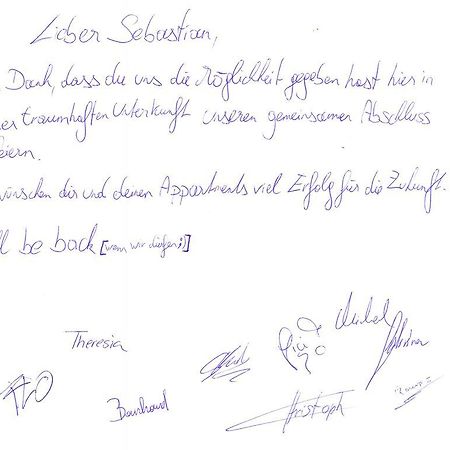 Lieber Sebastian,
Dank, dass du uns die Möglichkeit gegeben hast hier in
er traumhaften Unterkunft unseren gemeinsamen Abschluss
eiern.
wünschen dir und deinen Appartments viel Erfolg für die Zukunft.
ll be back [wenn wir dürfen ;)]
Michael
Theresia
Christoph